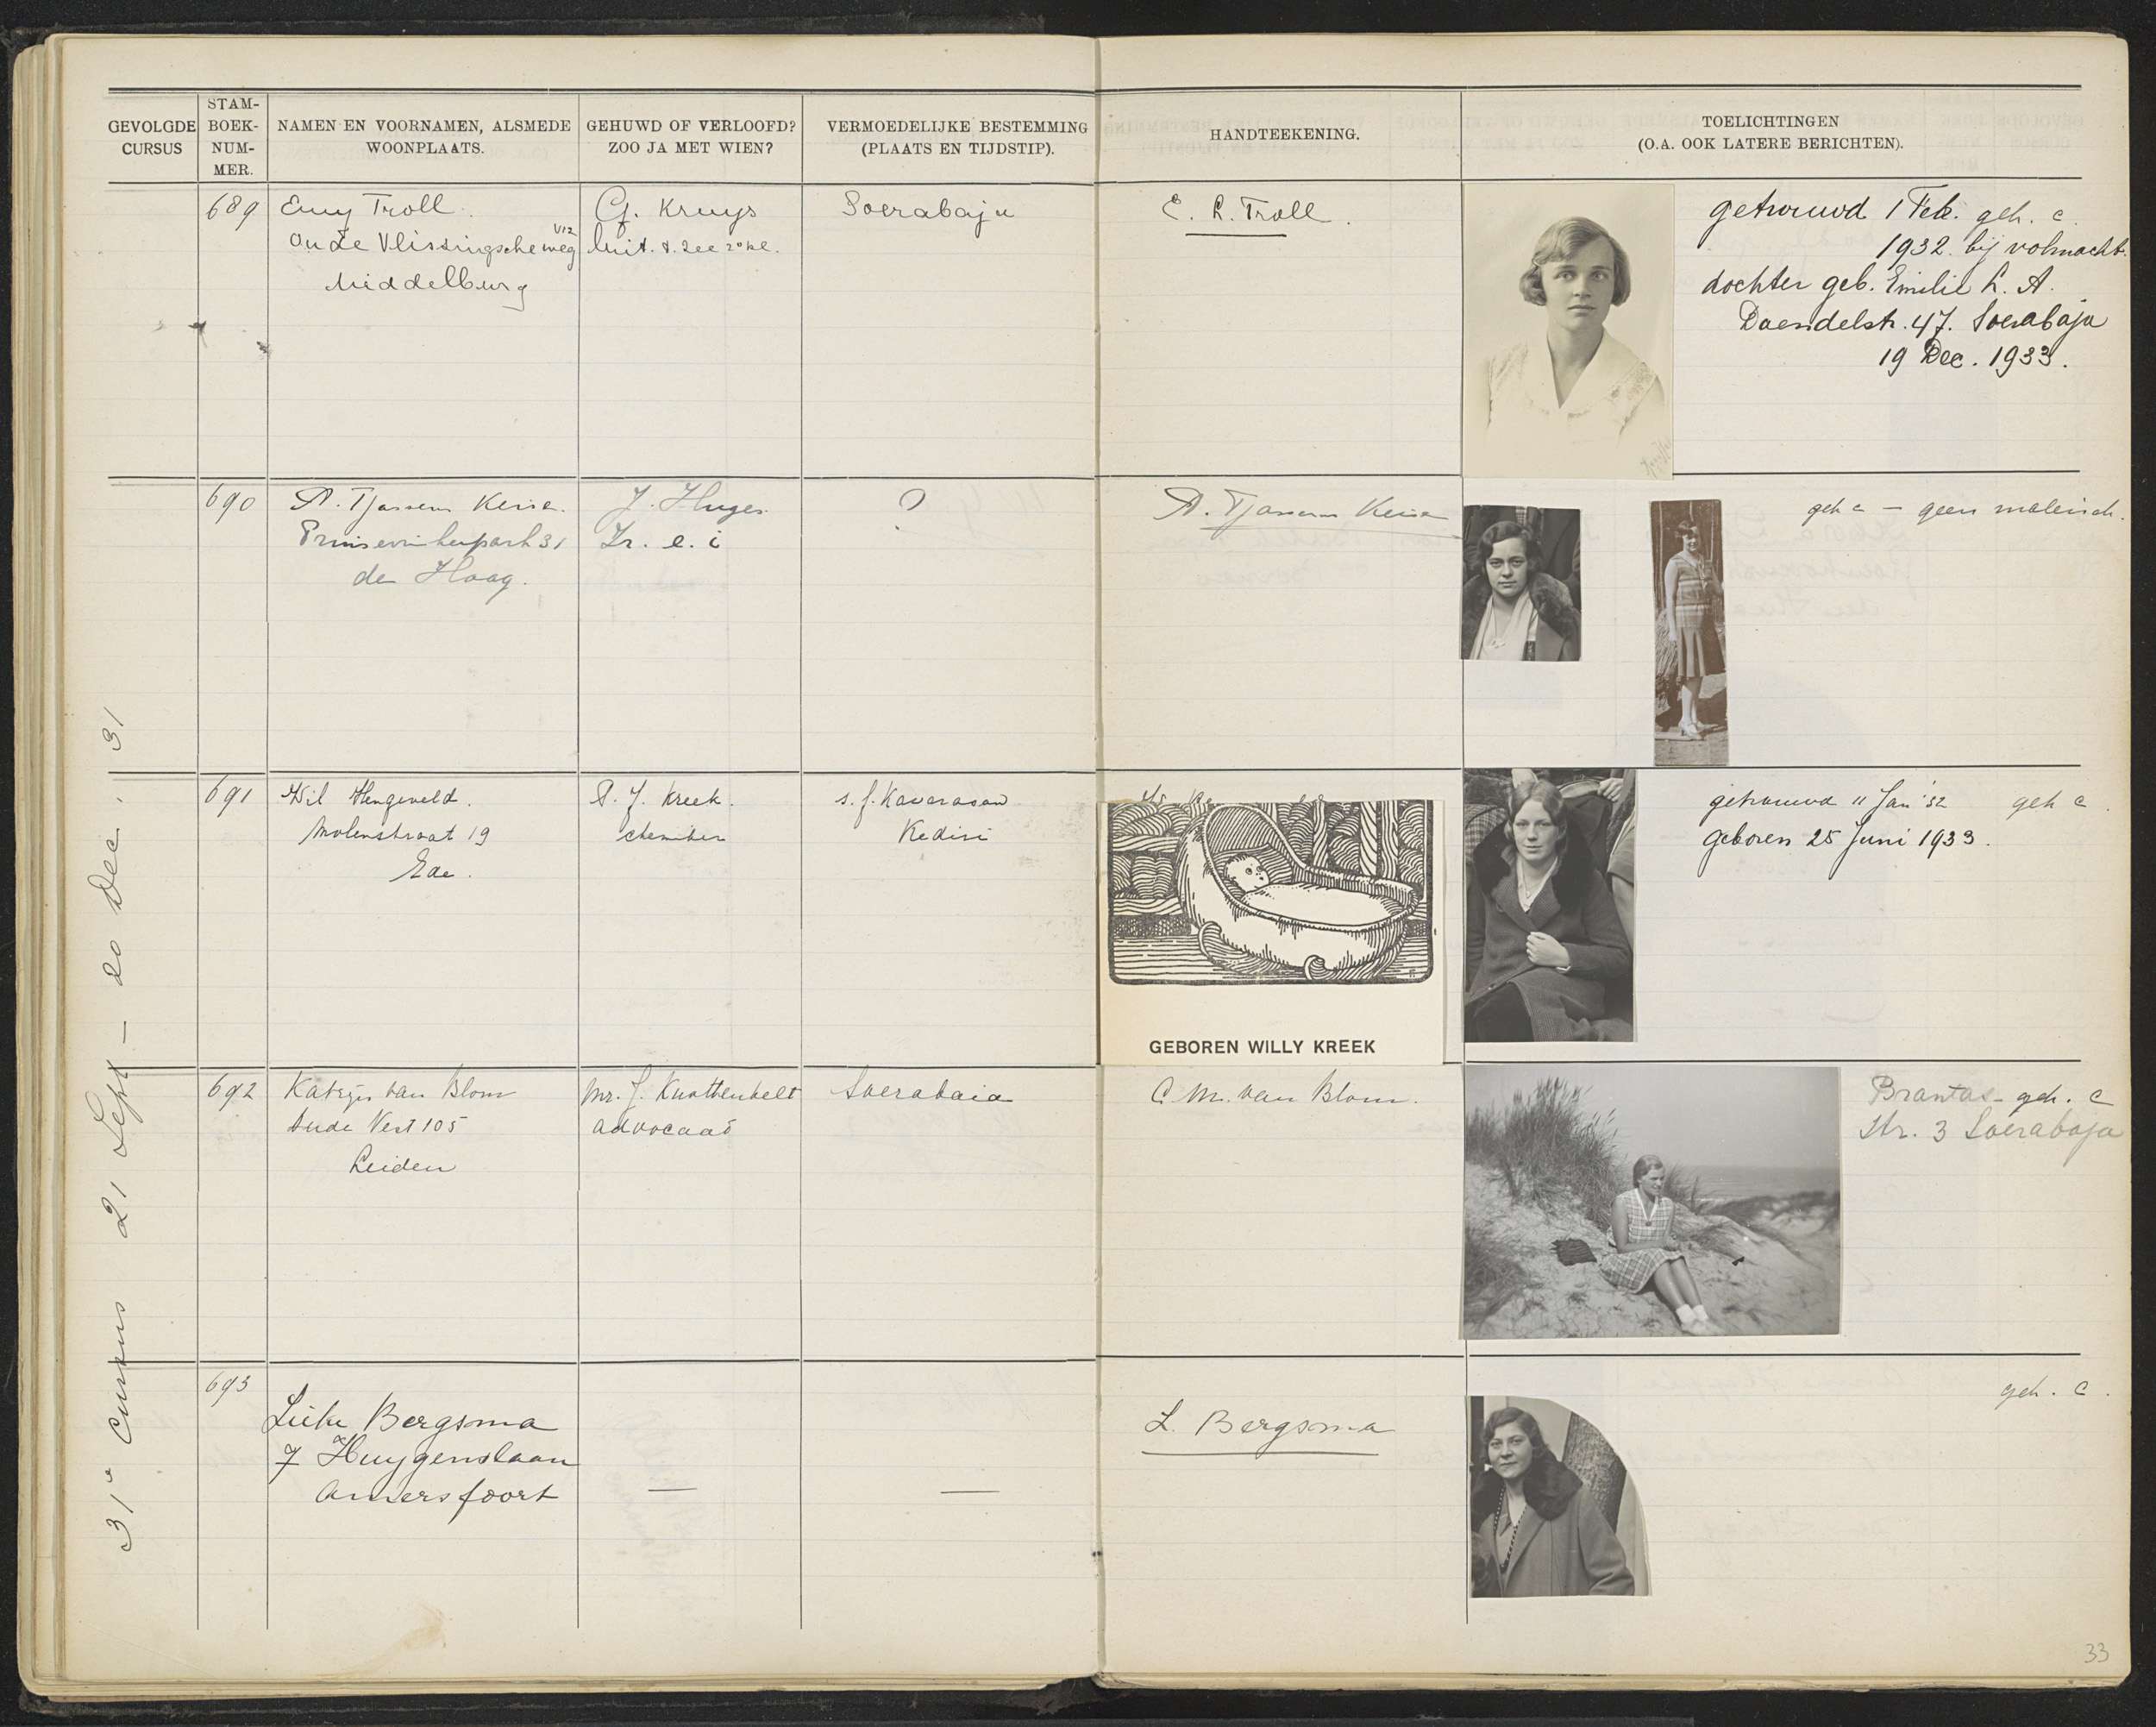 GEVOLGDE
CURSUS
STAM-
BOEK-
NUM-
MER.
NAMEN EN VOORNAMEN, ALSMEDE
WOONPLAATS.
GEHUWD OF VERLOOFD?
ZOO JA MET WIEN?
VERMOEDELIJKE BESTEMMING
(PLAATS EN TIJDSTIP).
HANDTEEKENING.
TOELICHTINGEN
(O.A. OOK LATERE BERICHTEN).
31e Cursus 21 Sept – 20 Dec. '31
689
Emy Troll.
Oude Vlissingscheweg V12
Middelburg
G. Kruys
luit. t. Zee 2e kl.
Soerabaja
E. L. Troll.
getrouwd 1 Feb. geh. c.
1932. bij volmacht.
dochter geb. Emilie L. A.
Daendelstr. 47. Soerabaja
19 Dec. 1933.
690
A. Tjassens Keiser
31
den Haag.
J. Huges
Ir. e. i
?
A. Tjassens Keiser
geh c – geen maleisch.
691
Wil Hengeveld.
Molenstraat 19
Ede.
P. J. Kreek.
s. f. Kawarasan
Kediri
GEBOREN WILLY KREEK
getrouwd 11 Jan '32 geh c.
geboren 25 Juni 1933.
692
Katrijn van Blom
Oude Vest 105
Leiden
Mr. J. Knottenbelt
advocaat
Soerabaia
C. M. van Blom.
Brantas- geh. c
str. 3 Soerabaja
693
Lieke Bergsma
7 Huygenslaan
Amersfoort
—
—
L. Bergsma
geh. c.
33